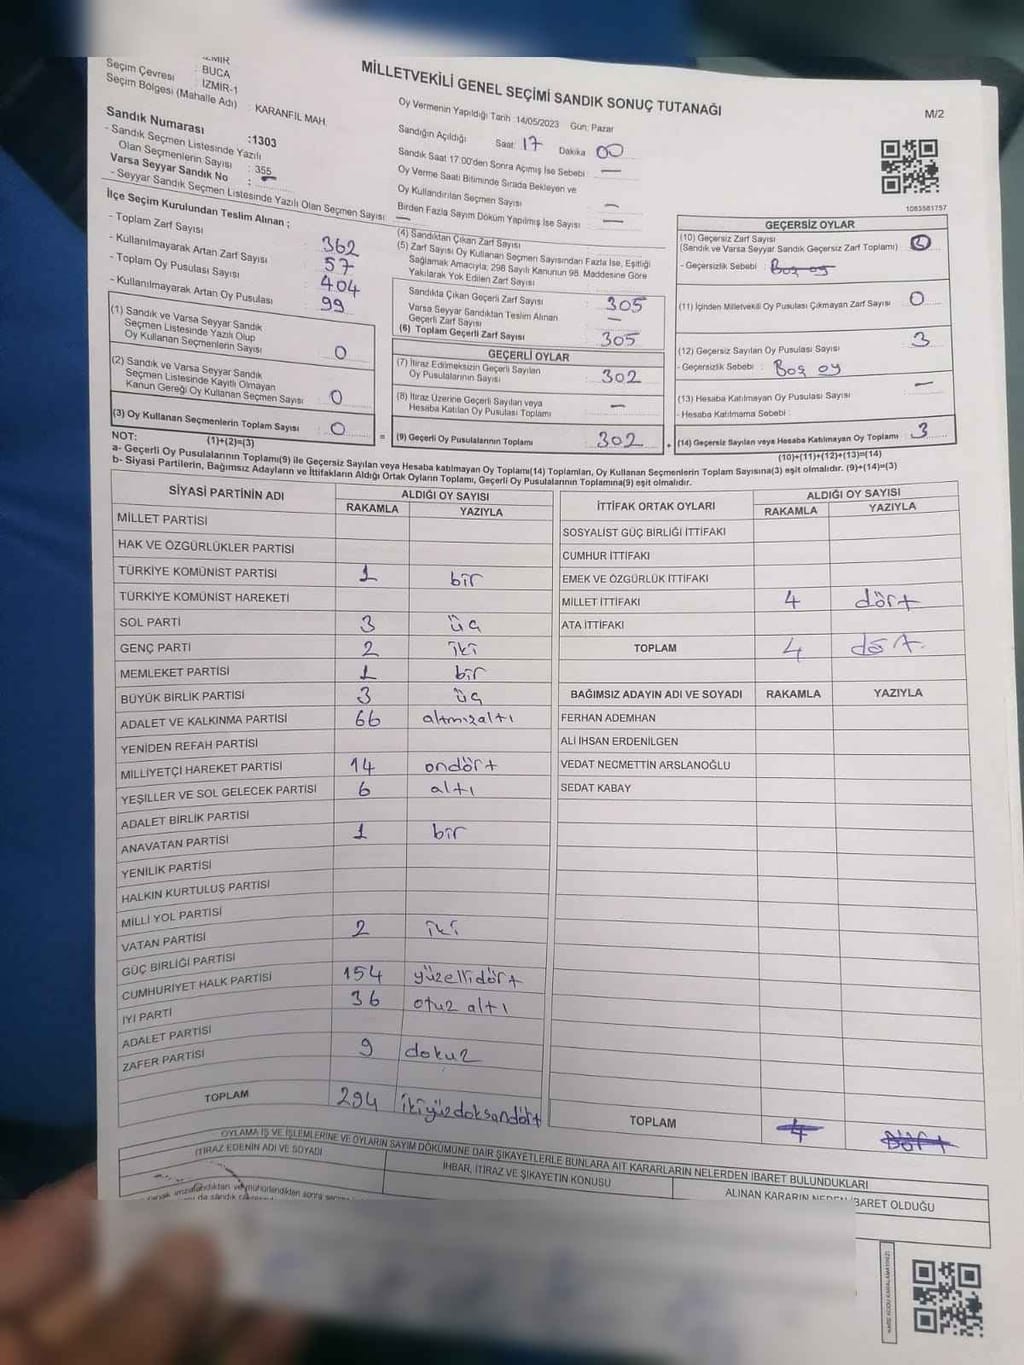 MİLLETVEKİLİ GENEL SEÇİMİ SANDIK SONUÇ TUTANAĞI
M/2
İZMİR
Seçim Çevresi : BUCA
Seçim Bölgesi (Mahalle Adı) İZMİR-1
: KARANFİL MAH.
Sandık Numarası :1303
- Sandık Seçmen Listesinde Yazılı
Olan Seçmenlerin Sayısı : 355
Varsa Seyyar Sandık No :
- Seyyar Sandık Seçmen Listesinde Yazılı Olan Seçmen Sayısı : —
Oy Vermenin Yapıldığı Tarih :14/05/2023 Gün: Pazar
Sandığın Açıldığı Saat: 17 Dakika 00
Sandık Saat 17:00'den Sonra Açımış İse Sebebi : —
Oy Verme Saati Bitiminde Sırada Bekleyen ve
Oy Kullandırılan Seçmen Sayısı : —
Birden Fazla Sayım Döküm Yapılmış İse Sayısı : —
1083581757
İlçe Seçim Kurulundan Teslim Alınan ;
- Toplam Zarf Sayısı : 362
- Kullanılmayarak Artan Zarf Sayısı : 57
- Toplam Oy Pusulası Sayısı : 404
- Kullanılmayarak Artan Oy Pusulası : 99
(1) Sandık ve Varsa Seyyar Sandık
Seçmen Listesinde Yazılı Olup
Oy Kullanan Seçmenlerin Sayısı 0
(2) Sandık ve Varsa Seyyar Sandık
Seçmen Listesinde Kayıtlı Olmayan
Kanun Gereği Oy Kullanan Seçmen Sayısı : 0
(3) Oy Kullanan Seçmenlerin Toplam Sayısı : 0
(4) Sandıktan Çıkan Zarf Sayısı
(5) Zarf Sayısı Oy Kullanan Seçmen Sayısından Fazla İse, Eşitliği
Sağlamak Amacıyla; 298 Sayılı Kanunun 98. Maddesine Göre
Yakılarak Yok Edilen Zarf Sayısı :
Sandıkta Çıkan Geçerli Zarf Sayısı : 305
Varsa Seyyar Sandıktan Teslim Alınan
Geçerli Zarf Sayısı : —
(6) Toplam Geçerli Zarf Sayısı : 305
GEÇERLİ OYLAR
(7) İtiraz Edilmeksizin Geçerli Sayılan
Oy Pusulalarının Sayısı : 302
(8) İtiraz Üzerine Geçerli Sayılan veya
Hesaba Katılan Oy Pusulası Toplamı : —
(9) Geçerli Oy Pusulalarının Toplamı : 302
GEÇERSİZ OYLAR
(10) Geçersiz Zarf Sayısı
(Sandık ve Varsa Seyyar Sandık Geçersiz Zarf Toplamı) :
- Geçersizlik Sebebi : Boş oy
(11) İçinden Milletvekili Oy Pusulası Çıkmayan Zarf Sayısı : 0
(12) Geçersiz Sayılan Oy Pusulası Sayısı : 3
- Geçersizlik Sebebi : Boş oy
(13) Hesaba Katılmayan Oy Pusulası Sayısı : —
- Hesaba Katılmama Sebebi :
(14) Geçersiz Sayılan veya Hesaba Katılmayan Oy Toplamı : 3
NOT: (1)+(2)=(3)
(10)+(11)+(12)+(13)=(14)
a- Geçerli Oy Pusulalarının Toplamı(9) ile Geçersiz Sayılan veya Hesaba katılmayan Oy Toplamı(14) Toplamları, Oy Kullanan Seçmenlerin Toplam Sayısına(3) eşit olmalıdır. (9)+(14)=(3)
b- Siyasi Partilerin, Bağımsız Adayların ve İttifakların Aldığı Ortak Oyların Toplamı, Geçerli Oy Pusulalarının Toplamına(9) eşit olmalıdır.
SİYASİ PARTİNİN ADI ALDIĞI OY SAYISI
RAKAMLA YAZIYLA
MİLLET PARTİSİ
HAK VE ÖZGÜRLÜKLER PARTİSİ
TÜRKİYE KOMÜNİST PARTİSİ 1 bir
TÜRKİYE KOMÜNİST HAREKETİ
SOL PARTİ 3 üç
GENÇ PARTİ 2 iki
MEMLEKET PARTİSİ 1 bir
BÜYÜK BİRLİK PARTİSİ 3 üç
ADALET VE KALKINMA PARTİSİ 66 altmışaltı
YENİDEN REFAH PARTİSİ
MİLLİYETÇİ HAREKET PARTİSİ 14 ondört
YEŞİLLER VE SOL GELECEK PARTİSİ 6 altı
ADALET BİRLİK PARTİSİ
ANAVATAN PARTİSİ 1 bir
YENİLİK PARTİSİ
HALKIN KURTULUŞ PARTİSİ
MİLLİ YOL PARTİSİ
VATAN PARTİSİ 2 iki
GÜÇ BİRLİĞİ PARTİSİ
CUMHURİYET HALK PARTİSİ 154 yüzellidört
İYİ PARTİ 36 otuz altı
ADALET PARTİSİ
ZAFER PARTİSİ 9 dokuz
TOPLAM 294 ikiyüzdoksandört
İTTİFAK ORTAK OYLARI ALDIĞI OY SAYISI
RAKAMLA YAZIYLA
SOSYALİST GÜÇ BİRLİĞİ İTTİFAKI
CUMHUR İTTİFAKI
EMEK VE ÖZGÜRLÜK İTTİFAKI
MİLLET İTTİFAKI 4 dört
ATA İTTİFAKI
TOPLAM 4 dört
BAĞIMSIZ ADAYIN ADI VE SOYADI RAKAMLA YAZIYLA
FERHAN ADEMHAN
ALİ İHSAN ERDENİLGEN
VEDAT NECMETTİN ARSLANOĞLU
SEDAT KABAY
TOPLAM 4 Dört
OYLAMA İŞ VE İŞLEMLERİNE VE OYLARIN SAYIM DÖKÜMÜNE DAİR ŞİKAYETLERLE BUNLARA AİT KARARLARIN NELERDEN İBARET BULUNDUKLARI
İTİRAZ EDENİN ADI VE SOYADI İHBAR, İTİRAZ VE ŞİKAYETİN KONUSU ALINAN KARARIN NEDEN İBARET OLDUĞU